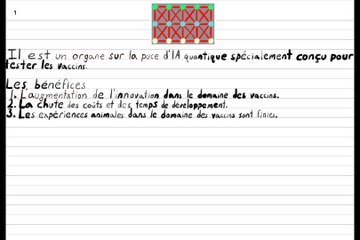 1
Il est un organe sur la puce d'IA quantique spécialement conçu pour
tester les vaccins.
Les bénéfices
1. L'augmentation de l'innovation dans le domaine des vaccins.
2. La chute des coûts et des temps de développement.
3. Les expériences animales dans le domaine des vaccins sont finies.